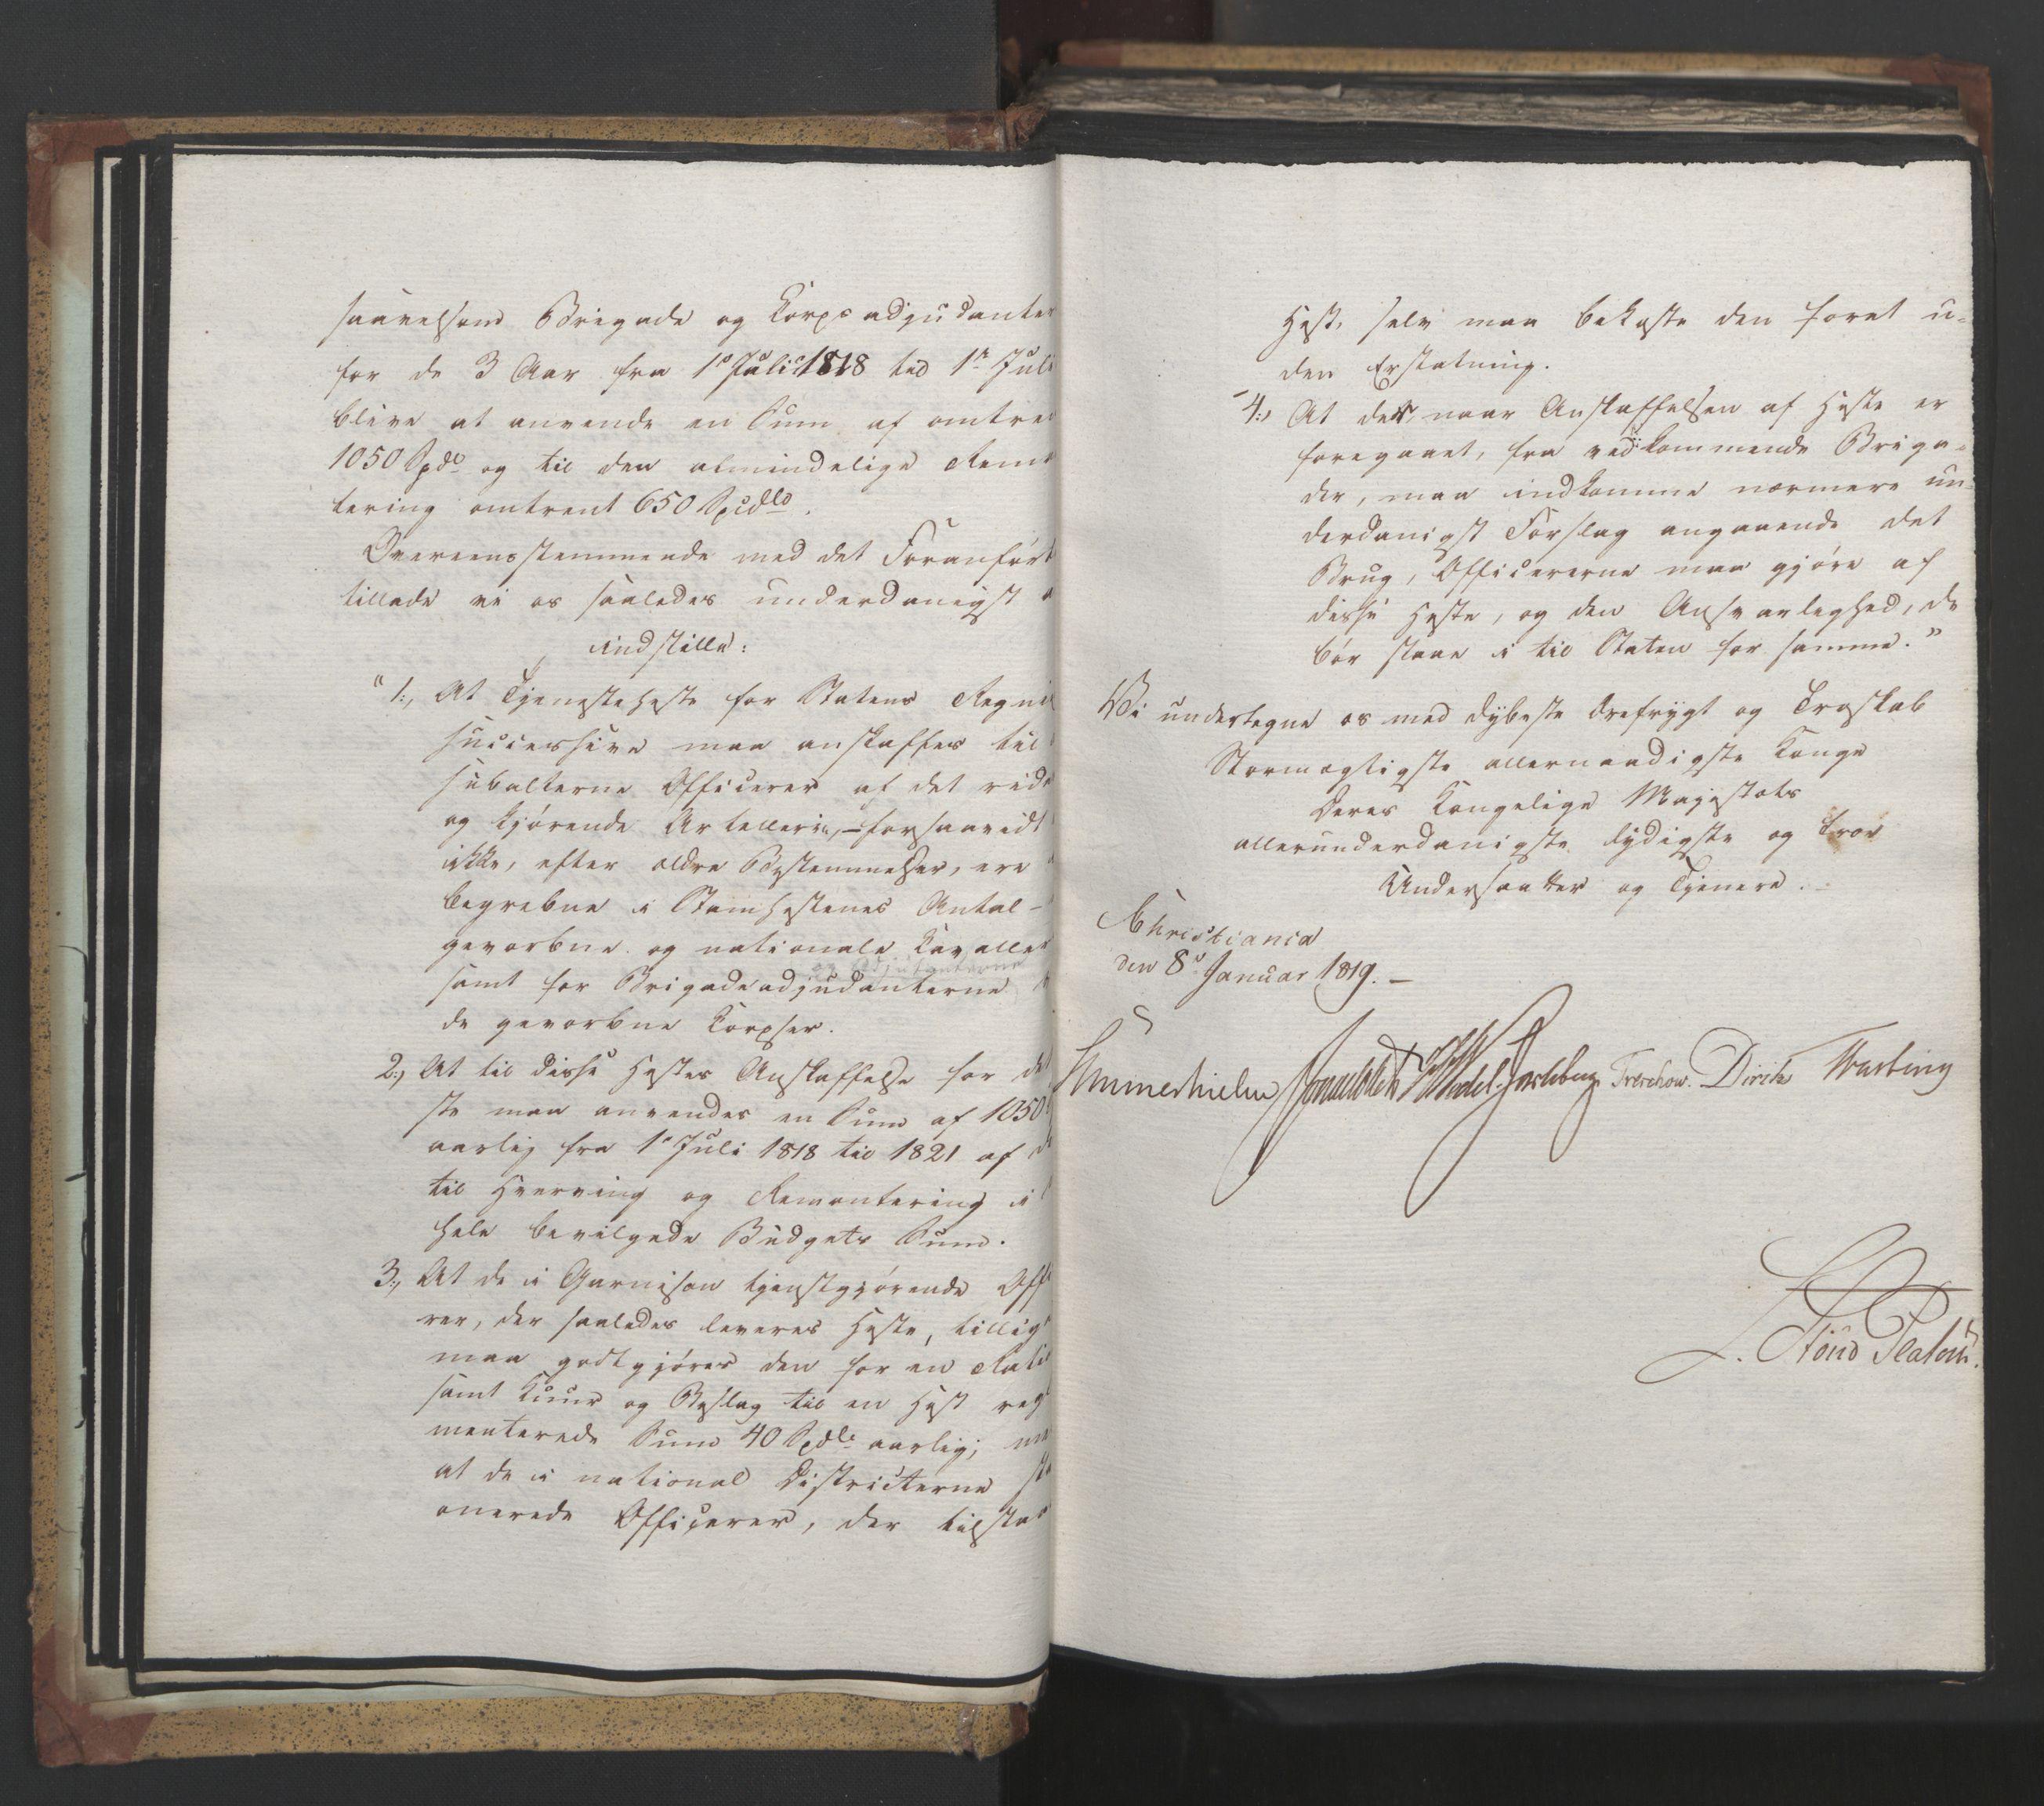 saavelsom Brigade og Corpsadjudanter
for de 3 Aar fra 1e Juli 1818 til 1e Juli
blive at anvende en Sum af omtren
1050 Spd og til den almindelige Remo
tering omtrent 650 Spcdlr.
Overeensstemmende med det Foranført
tillade vi os saaledes underdanigst a
indstille:
"1., At Tjenesteheste for Statens Regni
successive maa anskaffes til
subalterne Officerer af det ride
og kjørende Artellerie, – forsaavidt
ikke, efter ældre Bestemmelser, ere
begrebne i Stamhestenes Antal –
gevorbne og nationale Cavaller
og Adjutanterne
samt for Brigadeadjudanterne
de gevorbne Corpser.
2., At til disse Hestes Anskaffelse for de
ste maa anvendes en Sum af 1050
aarlig fra 1e Juli 1818 til 1821 af d
til Hverving og Remontering i
hele bevilgede Budgets Sum.
3., At de i Garnison tjenstgjørende Offi
rer, der saaledes leveres Heste, tillige
maa godtgjøres den for en Ratio
samt Kuur og Beslag til en Hest regl
menterede Sum 40 Spdlr aarlig; me
at de i national Districterne sta
onerede Officerer, der tilstaa
Hest, selv maa bekoste den foret u-
den Erstatning.
4., At der, naar Anskaffelsen af Heste er
foregaaet, fra vedkommende Briga-
der, maa indkomme nærmere un-
derdanigst Forslag angaaende det
Brug, Officererne maa gjøre af
disse Heste, og den Ansvarlighed, de
bør staae i til Staten for samme."
Vi undertegne os med dybeste Ærefrygt og Troskab
Stormægtigste allernaadigste Konge
Deres Kongelige Majestæts
allerunderdanigste lydigste og troe
Undersaatter og Tjenere.
Christiania
den 8e Januar 1819. –
Sommerhielm Jonas Collett Wedel-Jarlsberg Treschow. Diriks Fasting
L. Stoud Platou.